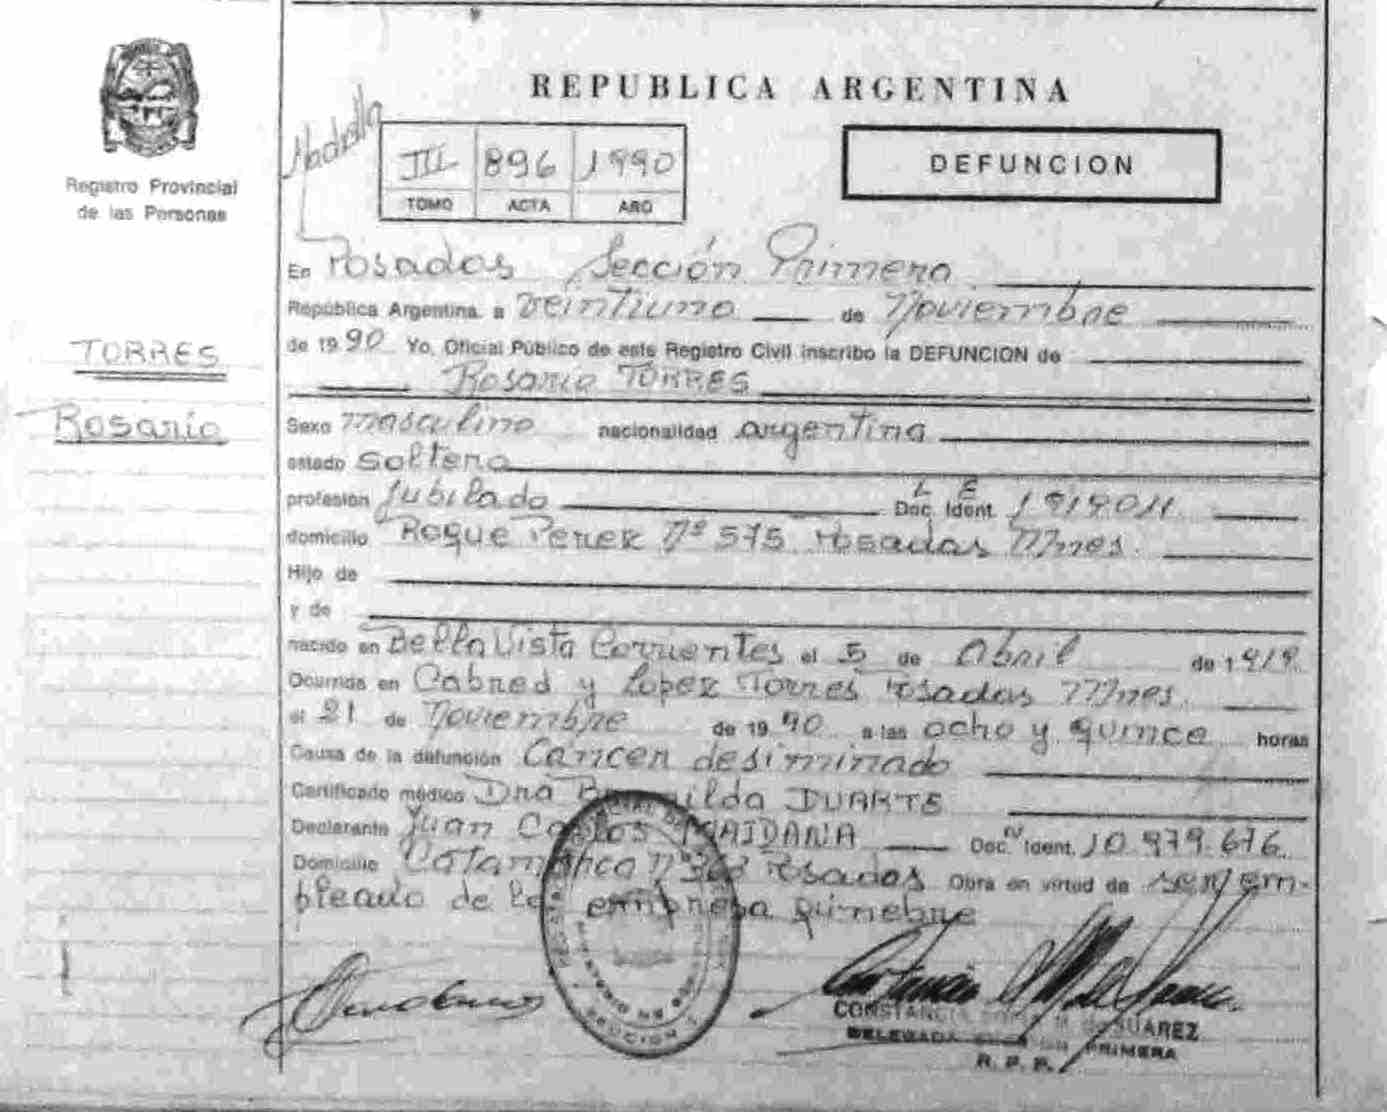 REPUBLICA ARGENTINA
Registro Provincial
de las Personas
III 896 1990
TOMO ACTA AÑO
DEFUNCION
En Posadas Sección Primera
República Argentina. a veintiuno de Noviembre
de 19 90 Yo, Oficial Público de este Registro Civil inscribo la DEFUNCION de
Rosario TORRES
TORRES
Rosario
Sexo masculino nacionalidad argentina
estado soltero
profesión Jubilado L E Doc. Ident. 1919011
domicilio Roque Perez Nº 575 Posadas Mnes.
Hijo de
y de
nacido en Bella Vista Corrientes el 5 de Abril de 1919
Ocurrida en Cabred y Lopez Torres Posadas Mnes.
el 21 de Noviembre de 19 90 a las ocho y quince horas
Causa de la defunción Cancer desiminado
Certificado médico Dra DUARTE
Declarante Juan Carlos MAIDANA Doc. N Ident. 10.979.676.
Domicilio Catamarca Posadas Obra en virtud de ser em-
pleado de la empresa funebre
SECCION 1
CONSTANCIA SUAREZ
DELEGADA PRIMERA
R. P. P.